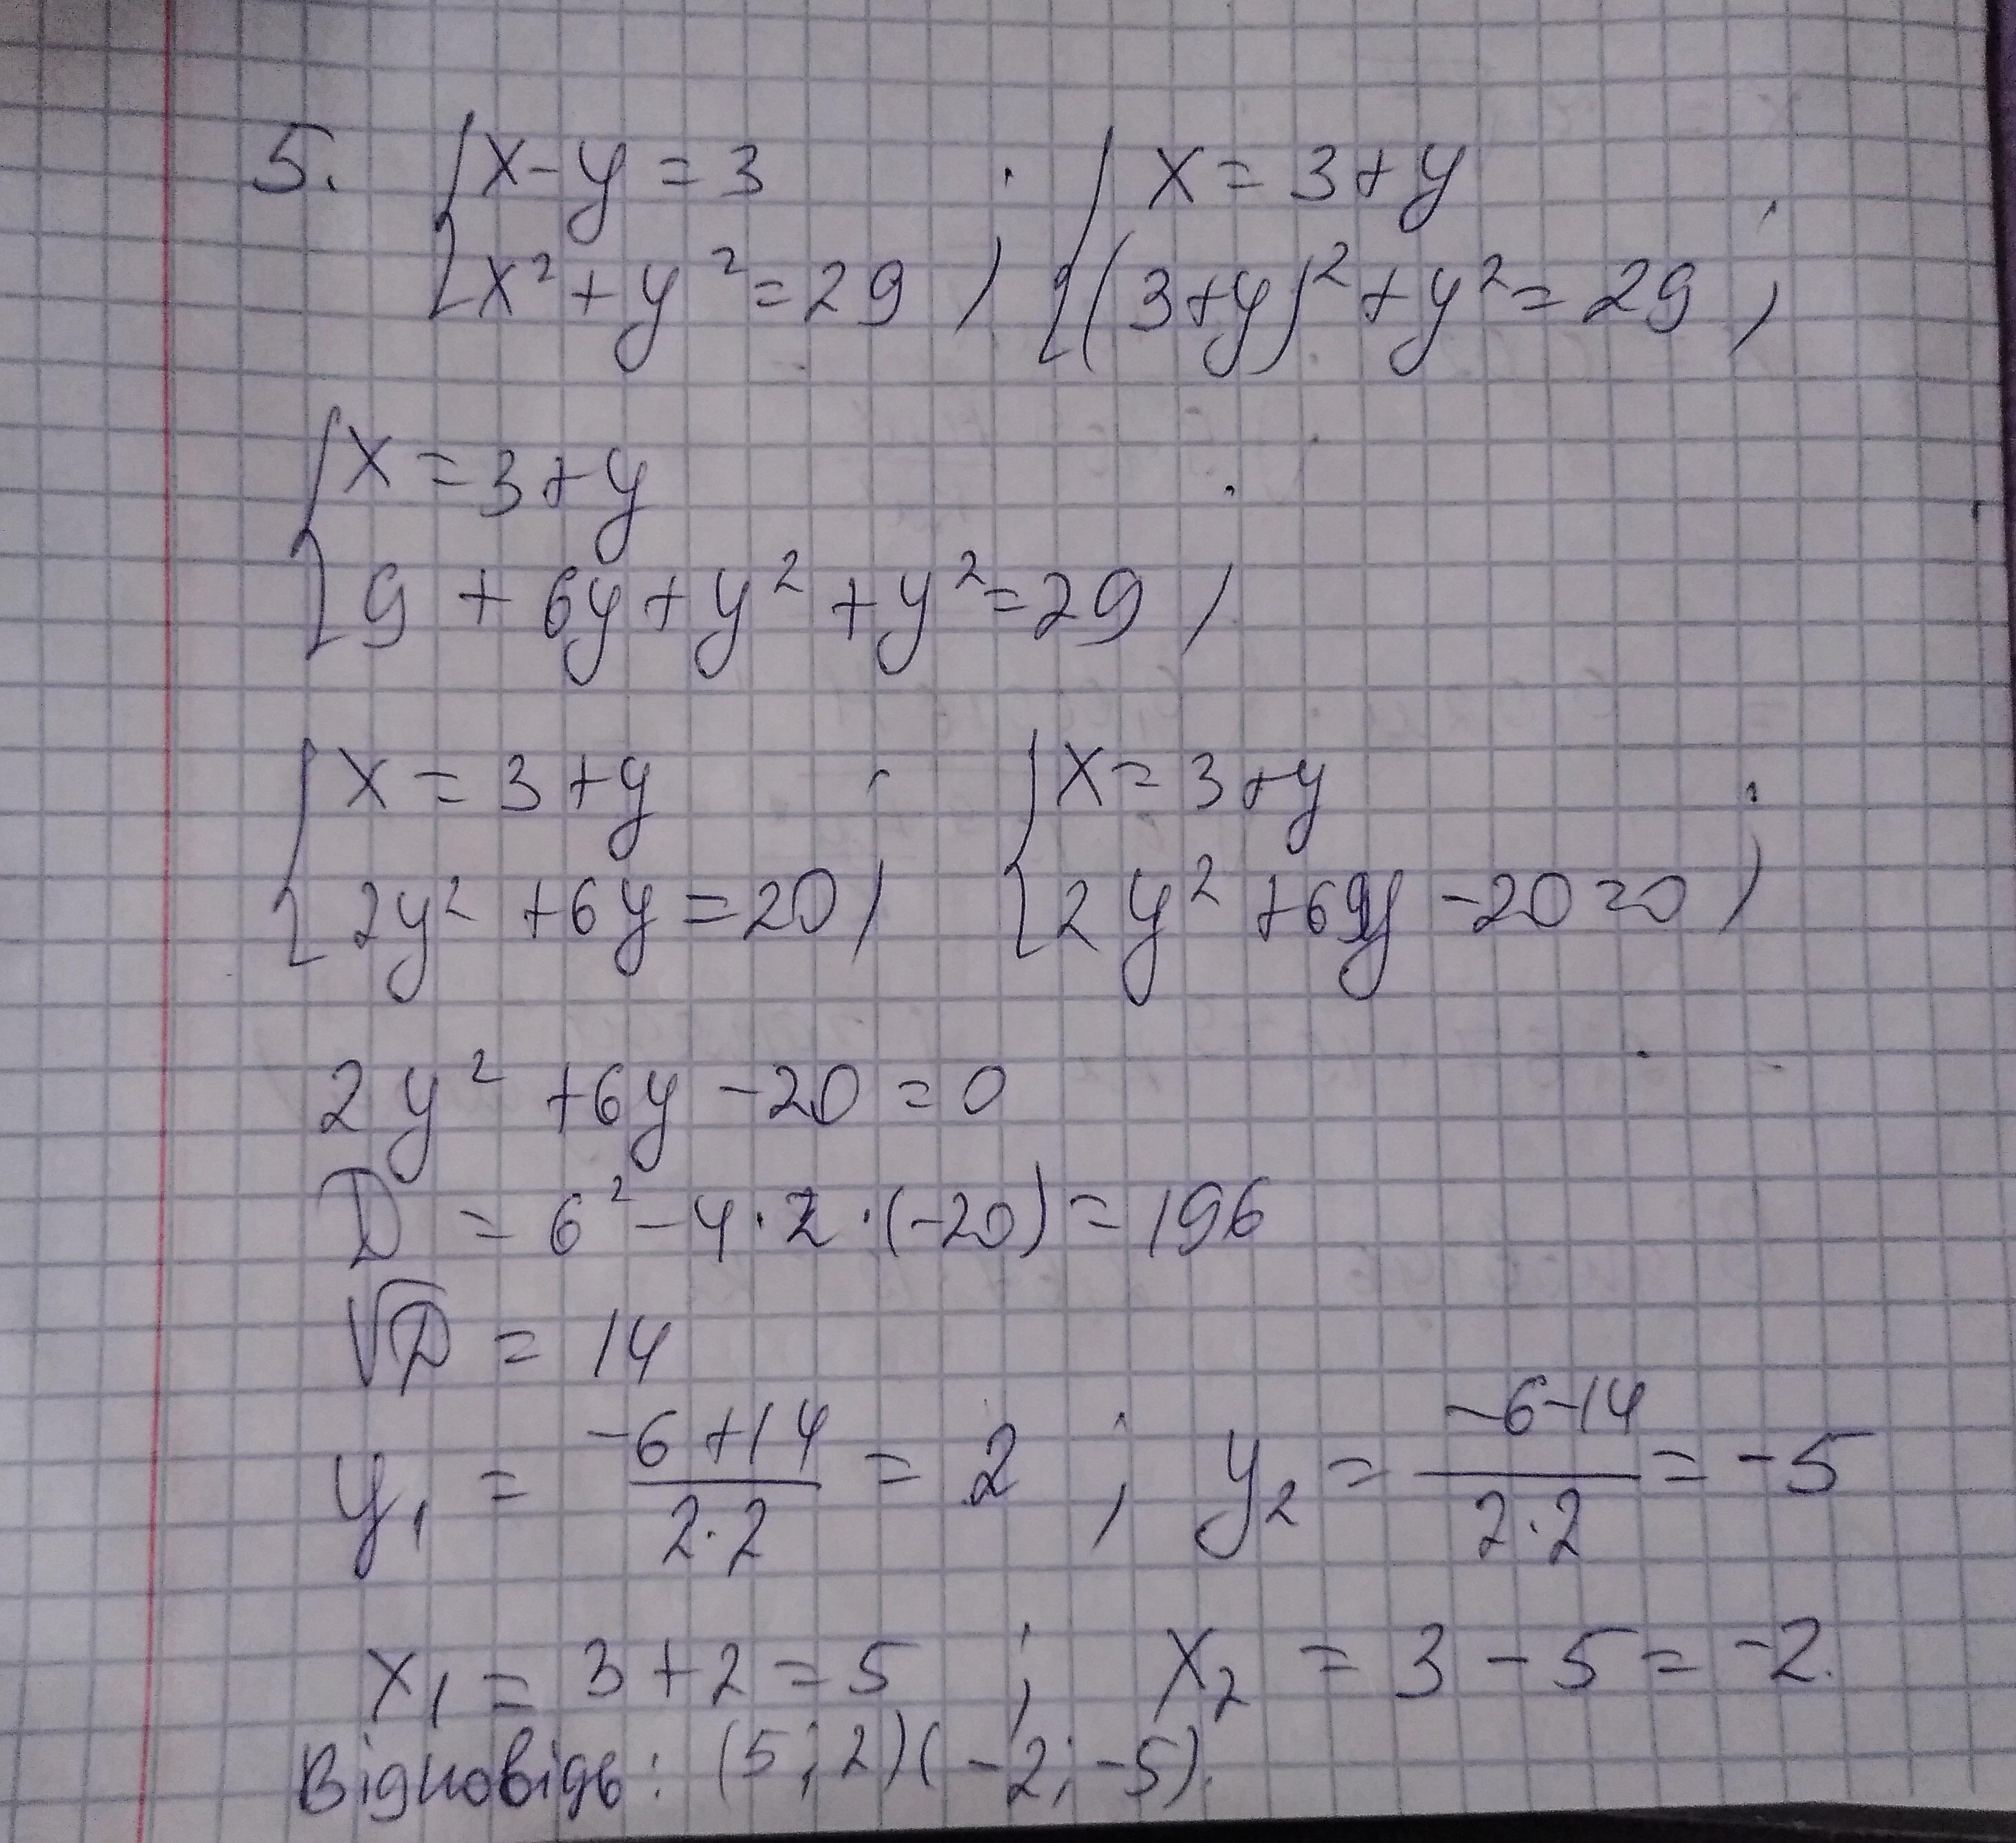 5. { x - y = 3 ; { x = 3 + y ;
{ x² + y² = 29 ; { (3+y)² + y² = 29 ;
{ x = 3 + y
{ 9 + 6y + y² + y² = 29 ;
{ x = 3 + y ; { x = 3 + y ;
{ 2y² + 6y = 20 ; { 2y² + 6y - 20 = 0 ;
2y² + 6y - 20 = 0
D = 6² - 4 · 2 · (-20) = 196
√D = 14
y₁ = (-6 + 14)/(2·2) = 2 ; y₂ = (-6-14)/(2·2) = -5
x₁ = 3 + 2 = 5 ; x₂ = 3 - 5 = -2.
Відповідь: (5; 2) (-2; -5).